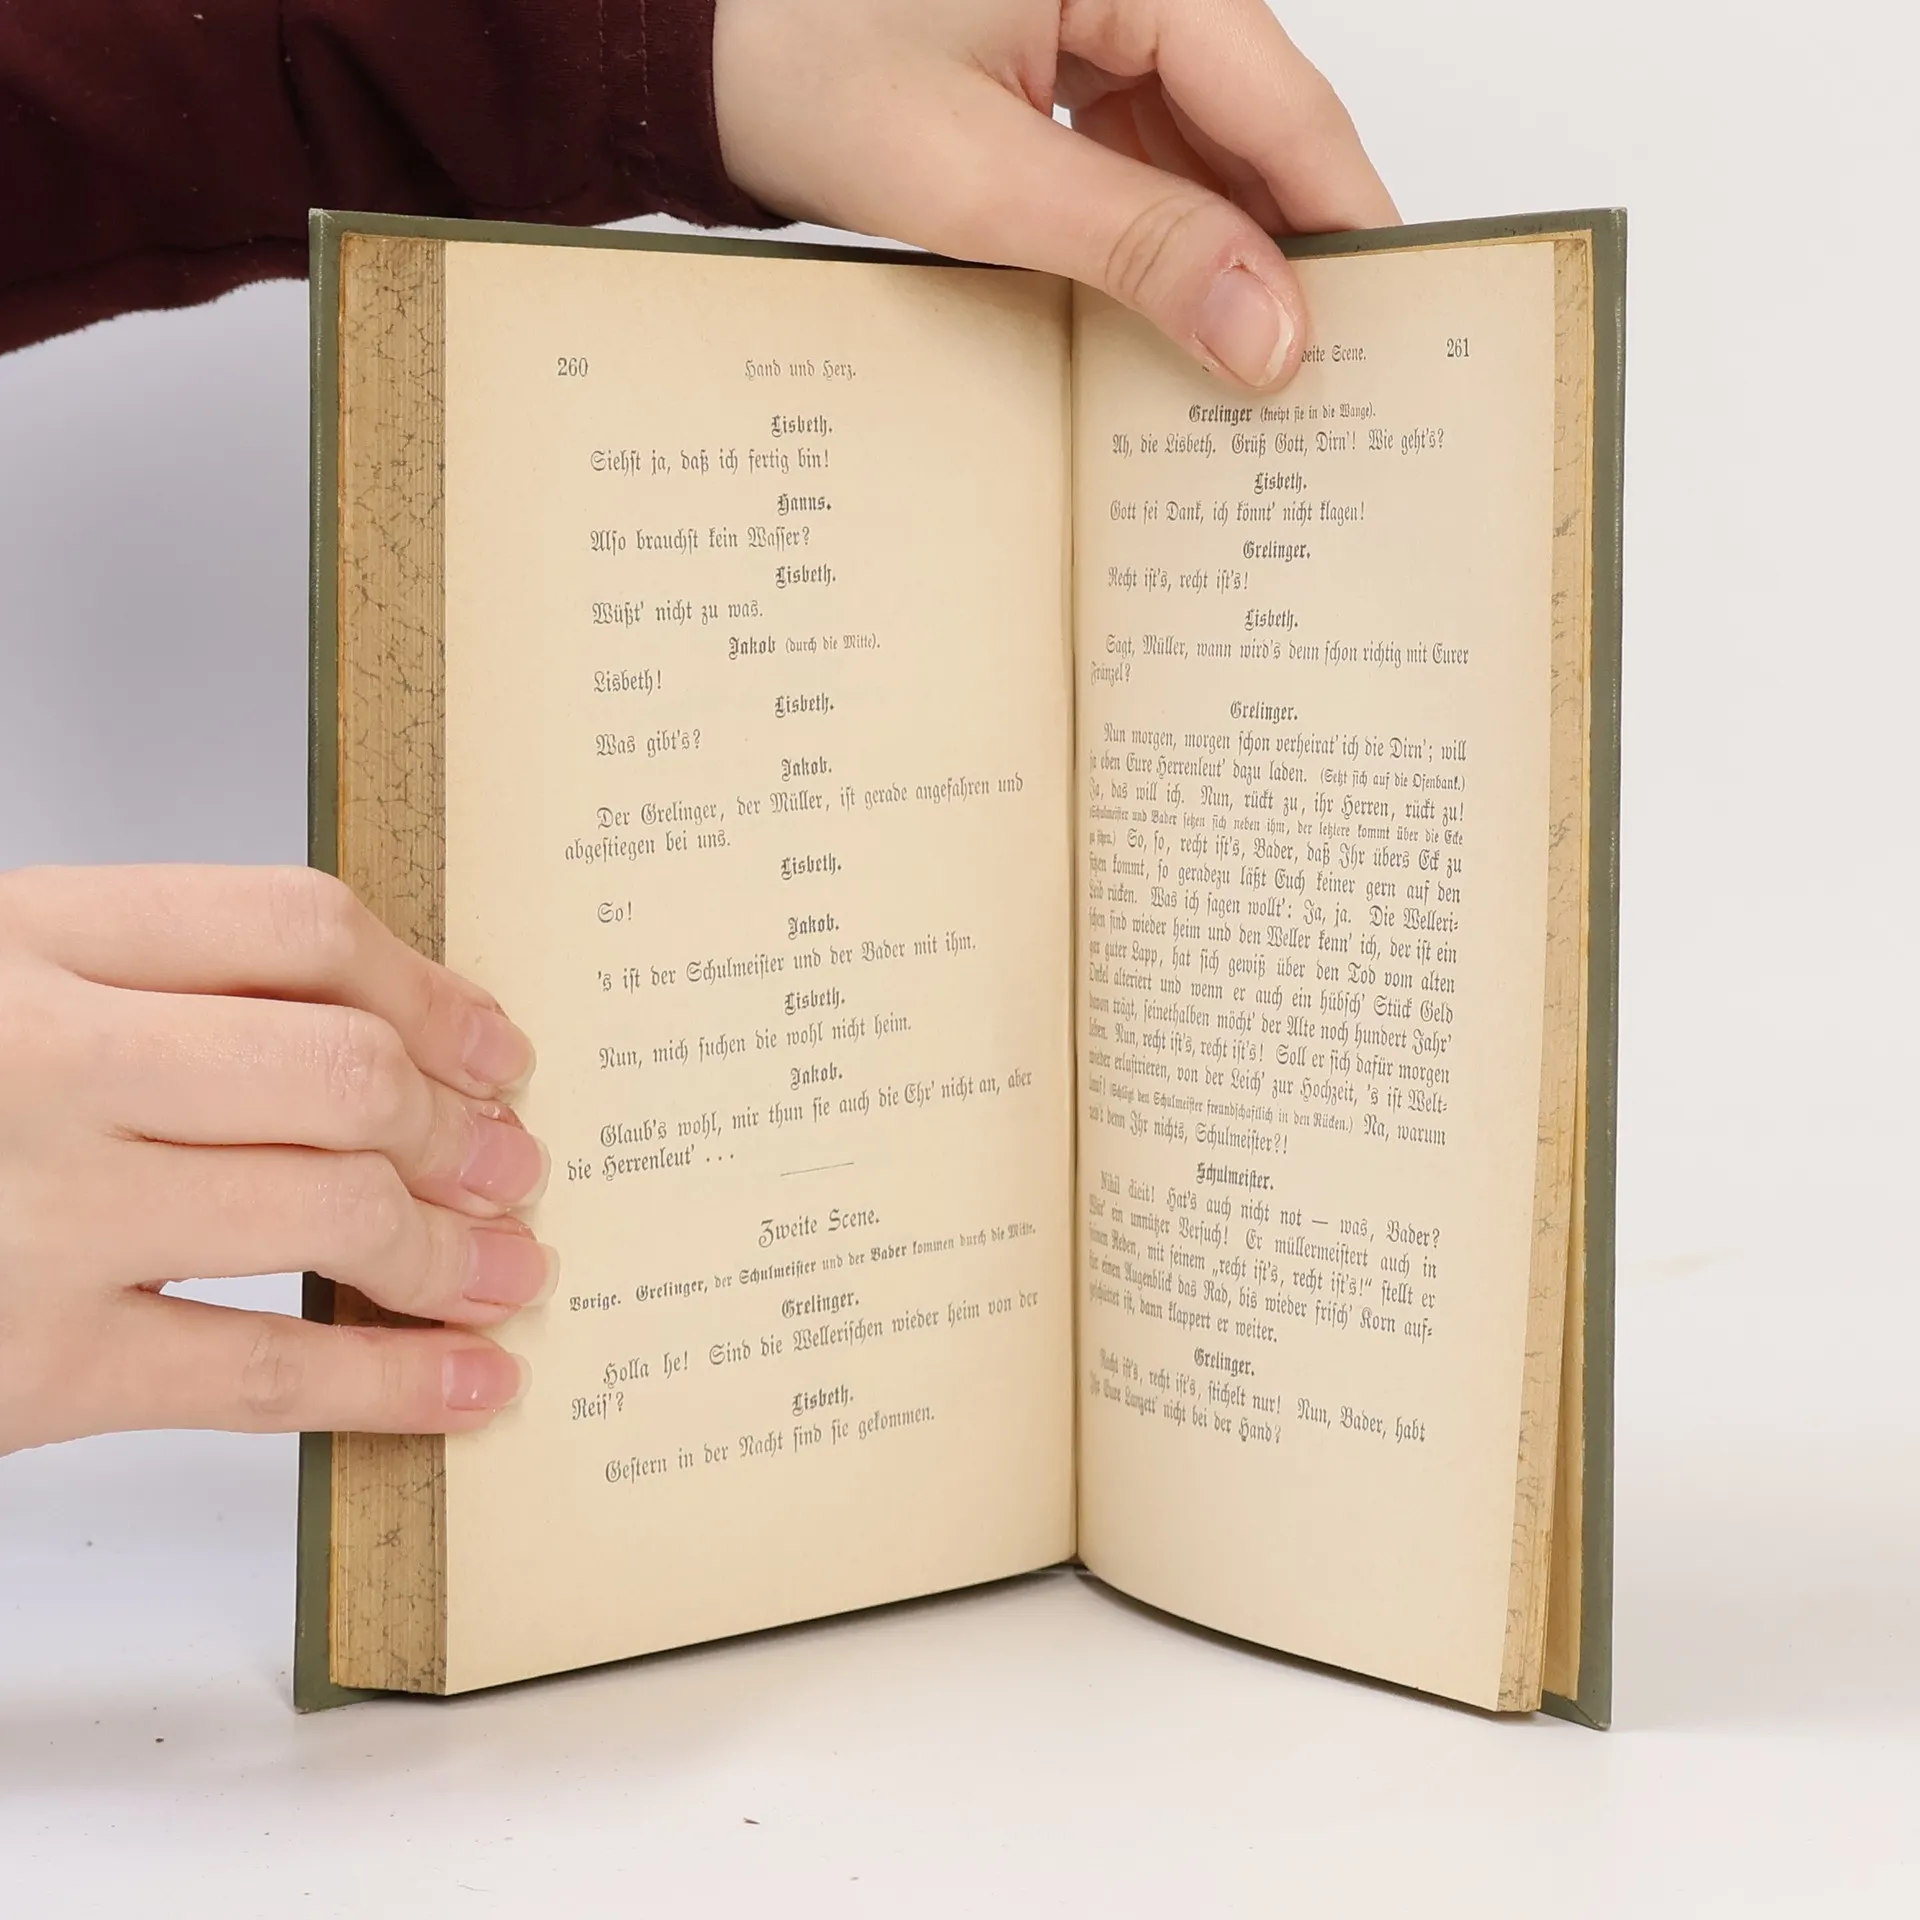 260
Hand und Herz.
Lisbeth.
Siehst ja, daß ich fertig bin!
Hanns.
Also brauchst kein Wasser?
Lisbeth.
Wüßt' nicht zu was.
Jakob (durch die Mitte).
Lisbeth!
Lisbeth.
Was gibt's?
Jakob.
Der Grelinger, der Müller, ist gerade angefahren und
abgestiegen bei uns.
Lisbeth.
So!
Jakob.
's ist der Schulmeister und der Bader mit ihm.
Lisbeth.
Nun, mich suchen die wohl nicht heim.
Jakob.
Glaub's wohl, mir thun sie auch die Ehr' nicht an, aber
die Herrenleut' . . .
Zweite Scene.
Vorige. Grelinger, der Schulmeister und der Bader kommen durch die Mitte.
Grelinger.
Holla he! Sind die Wellerischen wieder heim von der
Reis'?
Lisbeth.
Gestern in der Nacht sind sie gekommen.
Scene.
261
Grelinger (kneipt sie in die Wange).
Ah, die Lisbeth. Grüß Gott, Dirn'! Wie geht's?
Lisbeth.
Gott sei Dank, ich könnt' nicht klagen!
Grelinger.
Recht ist's, recht ist's!
Lisbeth.
Sagt, Müller, wann wird's denn schon richtig mit Eurer
Fränzel?
Grelinger.
Nun morgen, morgen schon verheirat' ich die Dirn'; will
ja eben Eure Herrenleut' dazu laden. (Setzt sich auf die Ofenbank.)
Ja, das will ich. Nun, rückt zu, ihr Herren, rückt zu!
(Schulmeister und Bader setzen sich neben ihm, der letztere kommt über die Ecke
zu sitzen.) So, so, recht ist's, Bader, daß Ihr übers Eck zu
sitzen kommt, so geradezu läßt Euch keiner gern auf den
Leib rücken. Was ich sagen wollt': Ja, ja. Die Welleri-
schen sind wieder heim und den Weller kenn' ich, der ist ein
gar guter Lapp, hat sich gewiß über den Tod vom alten
Onkel alteriert und wenn er auch ein hübsch' Stück Geld
davon trägt, seinethalben möcht' der Alte noch hundert Jahr'
leben. Nun, recht ist's, recht ist's! Soll er sich dafür morgen
wieder erlustrieren, von der Leich' zur Hochzeit, 's ist Welt-
lauf! (Schlägt den Schulmeister freundschaftlich in den Rücken.) Na, warum
red't denn Ihr nichts, Schulmeister?!
Schulmeister.
Nihil dicit! Hat's auch nicht not — was, Bader?
Wär' ein unnützer Versuch! Er müllermeistert auch in
seinen Reden, mit seinem „recht ist's, recht ist's!“ stellt er
für einen Augenblick das Rad, bis wieder frisch' Korn auf-
geschüttet ist, dann klappert er weiter.
Grelinger.
Recht ist's, recht ist's, stichelt nur! Nun, Bader, habt
Ihr Eure Lanzett' nicht bei der Hand?